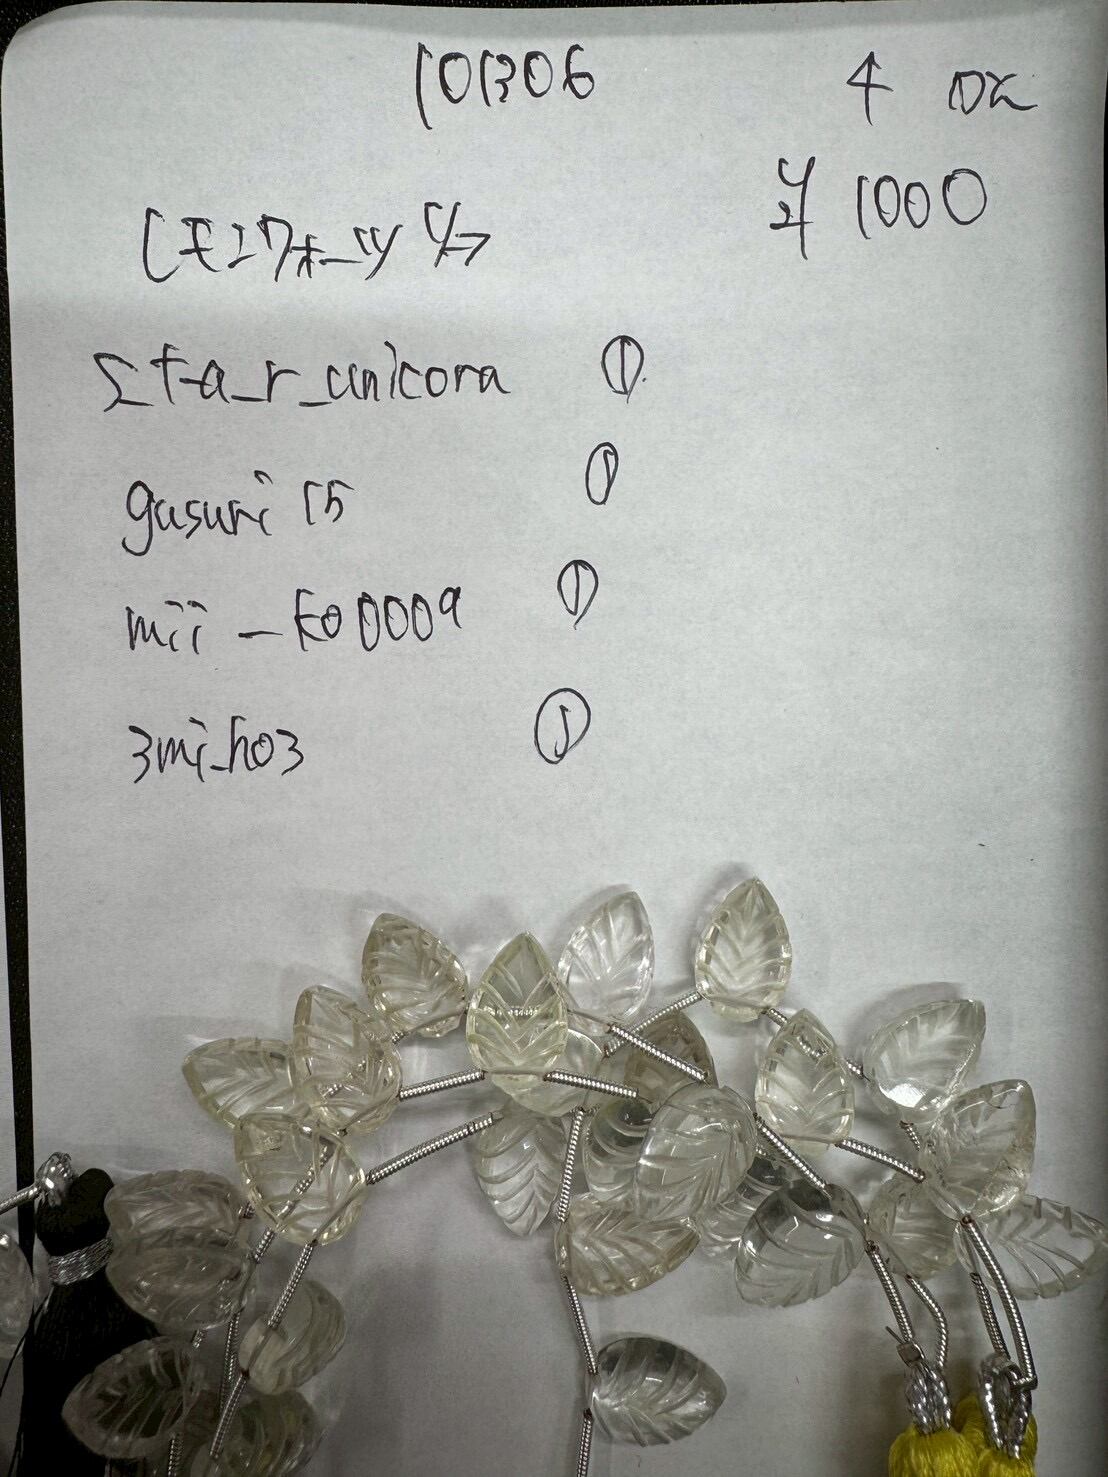 101306 4 pz
¥ 1000
レモンクォーツ リーフ
star_unicorn ①
gusuri 15 ①
mii_ko0009 ①
3mi_ho3 ①